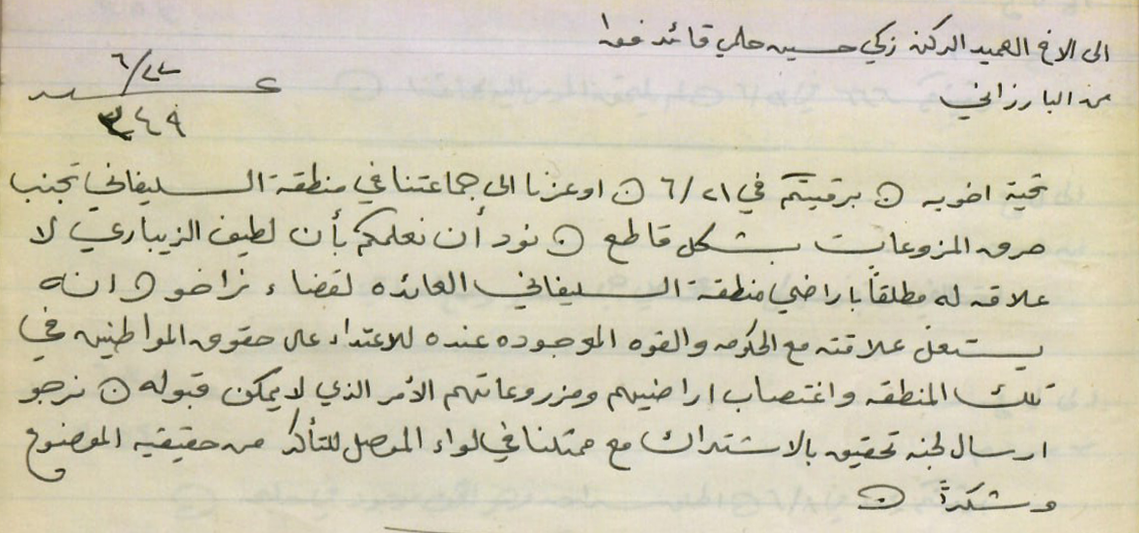 الى الاخ العميد الركن زكي حسين حلمي قائد فق١
من البارزاني
٦/٢٢
ع
٣٤٩
تحية اخويه ⊙ برقيتكم في ٦/٢١ ⊙ اوعزنا الى جماعتنا في منطقة السليفاني تجنب
حرق المزروعات بشكل قاطع ⊙ نود أن نعلمكم بأن لطيف الزيباري لا
علاقه له مطلقاً باراضي منطقة السليفاني العائده لقضاء زاخو ⊙ انه
يستغل علاقته مع الحكومه والقوه الموجوده عنده للاعتداء على حقوق المواطنين في
تلك المنطقه واغتصاب اراضيهم ومزروعاتهم الأمر الذي لا يمكن قبوله ⊙ نرجو
ارسال لجنه تحقيق بالاشتراك مع ممثلنا في لواء الموصل للتأكد من حقيقيه الموضوع
وشكراً ⊙